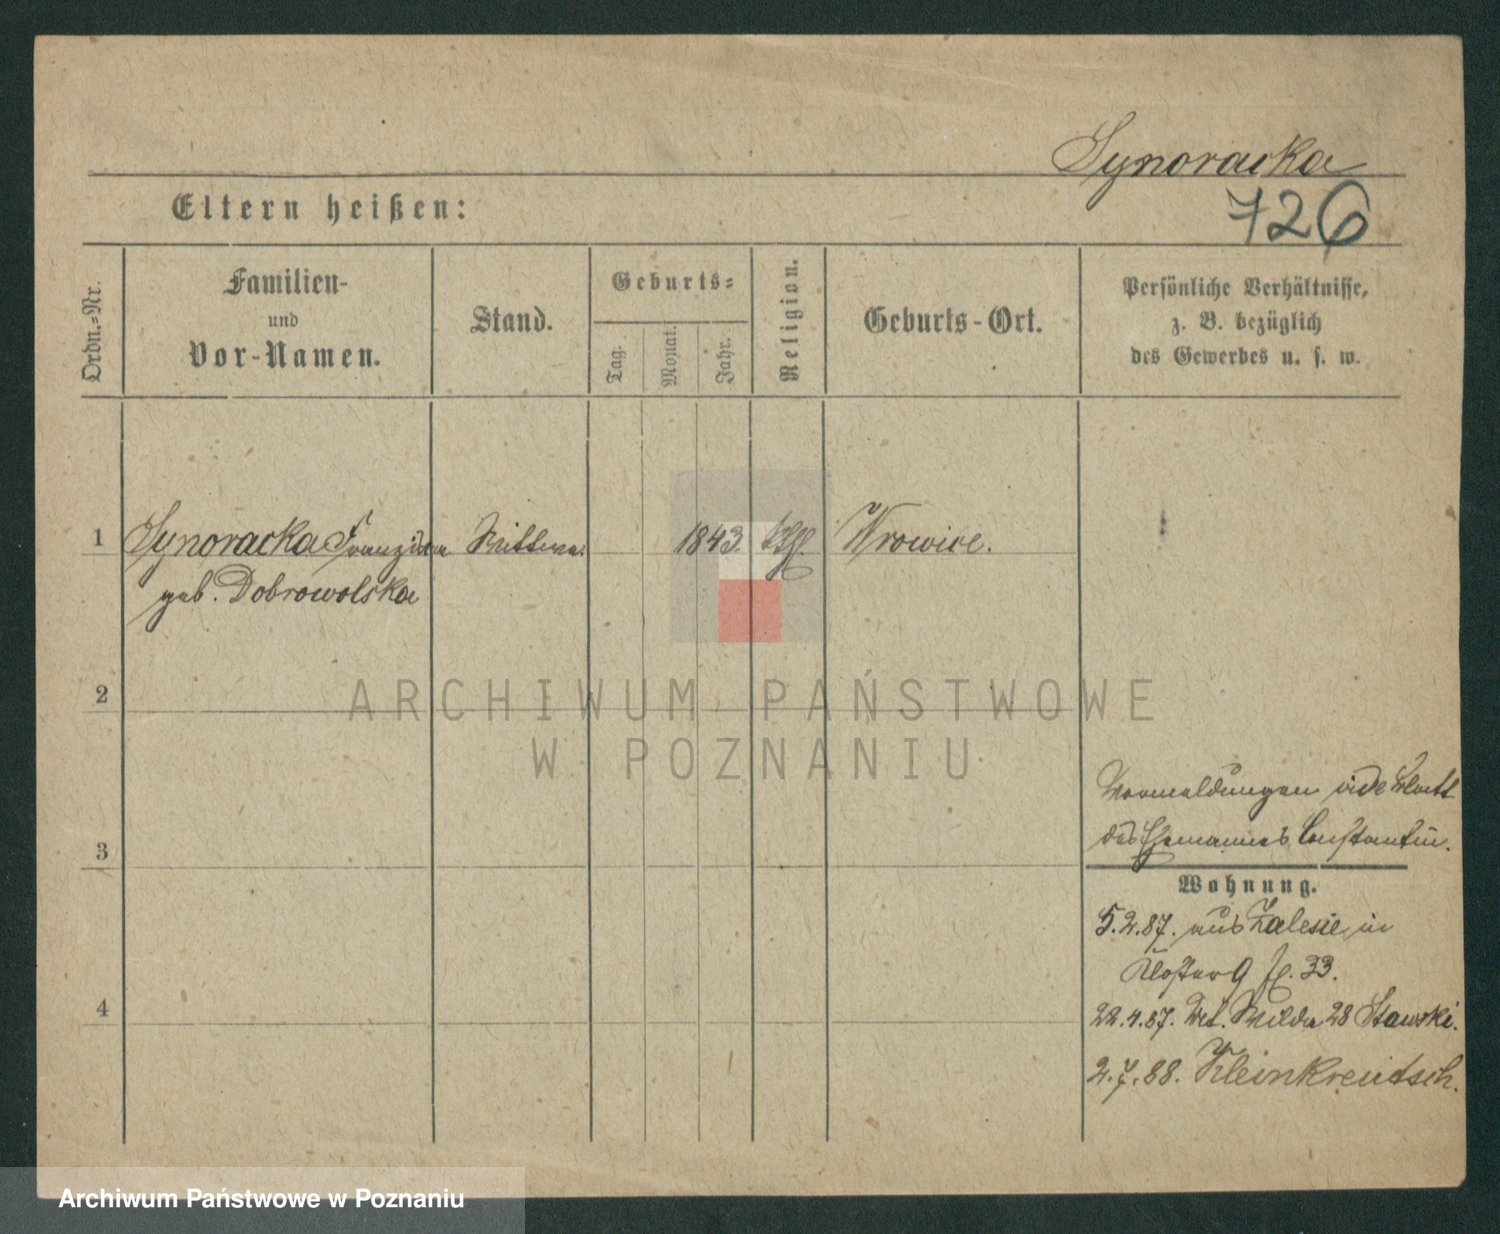 Synoracka
726
Eltern heißen:
Ordn.-Nr.
Familien-
und
Vor-Namen.
Stand.
Geburts-
Tag.
Monat.
Jahr.
Religion.
Geburts-Ort.
Persönliche Verhältnisse,
z. B. bezüglich
des Gewerbes u. s. w.
1 Synoracka Franziska Wittwe. 1843. kth. Wrowice.
geb. Dobrowolska
2
ARCHIWUM PAŃSTWOWE
W POZNANIU
Vormeldungen vide Blatt
des Ehemannes Constantin.
3
Wohnung.
5.2.87. aus Zalesie in
Kloster 9 fl. 33.
4
22.4.87. Wilda 28 Stawski.
2.7.88. Kleinkreutsch.
Archiwum Państwowe w Poznaniu